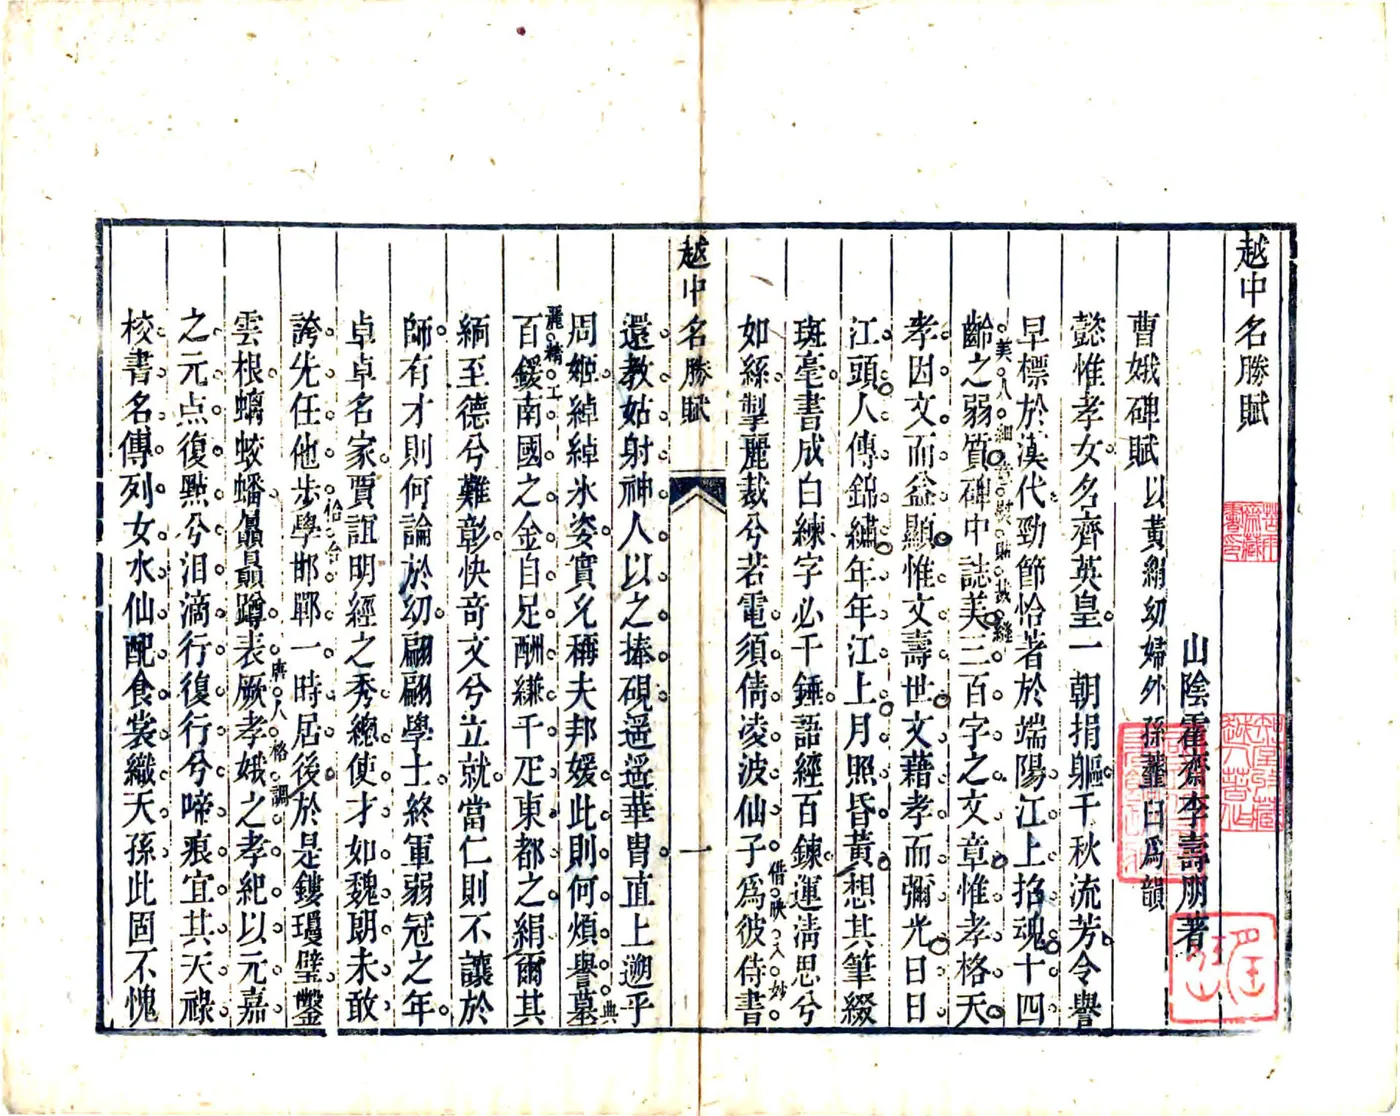 越中名勝賦
山陰霍齋李壽朋著
曹娥碑賦以黃絹幼婦外孫虀臼爲韻
懿惟孝女名齊英皇一朝捐軀千秋流芳令譽
早標於漢代勁節恰著於端陽江上招魂十四
齡之弱質碑中誌美三百字之文章惟孝格天
美人細意熨貼裁縫
孝因文而益顯惟文壽世文藉孝而彌光日日
江頭人傳錦繡年年江上月照昏黃想其筆綴
斑毫書成白練字必千錘語經百鍊運淸思兮
如絲掣麗裁兮若電須倩凌波仙子爲彼侍書
借映入妙
越中名勝賦
一
還教姑射神人以之捧硯遥遥華胄直上遡乎
周姬綽綽氷姿實允稱夫邦媛此則何煩譽墓
典麗精工
百鍰南國之金自足酬縑千疋東都之絹爾其
緬至德兮難彰快奇文兮立就當仁則不讓於
師有才則何論於幼翩翩學士終軍弱冠之年
卓卓名家賈誼明經之秀總使才如魏朗未敢
恰恰
誇先任他步學邯鄲一時居後於是鏤瓊璧鑿
唐人格調
雲根螭蛟蟠贔屭蹲表厥孝娥之孝紀以元嘉
之元点復點兮泪滴行復行兮啼痕宜其天祿
校書名傳列女水仙配食裳織天孫此固不愧